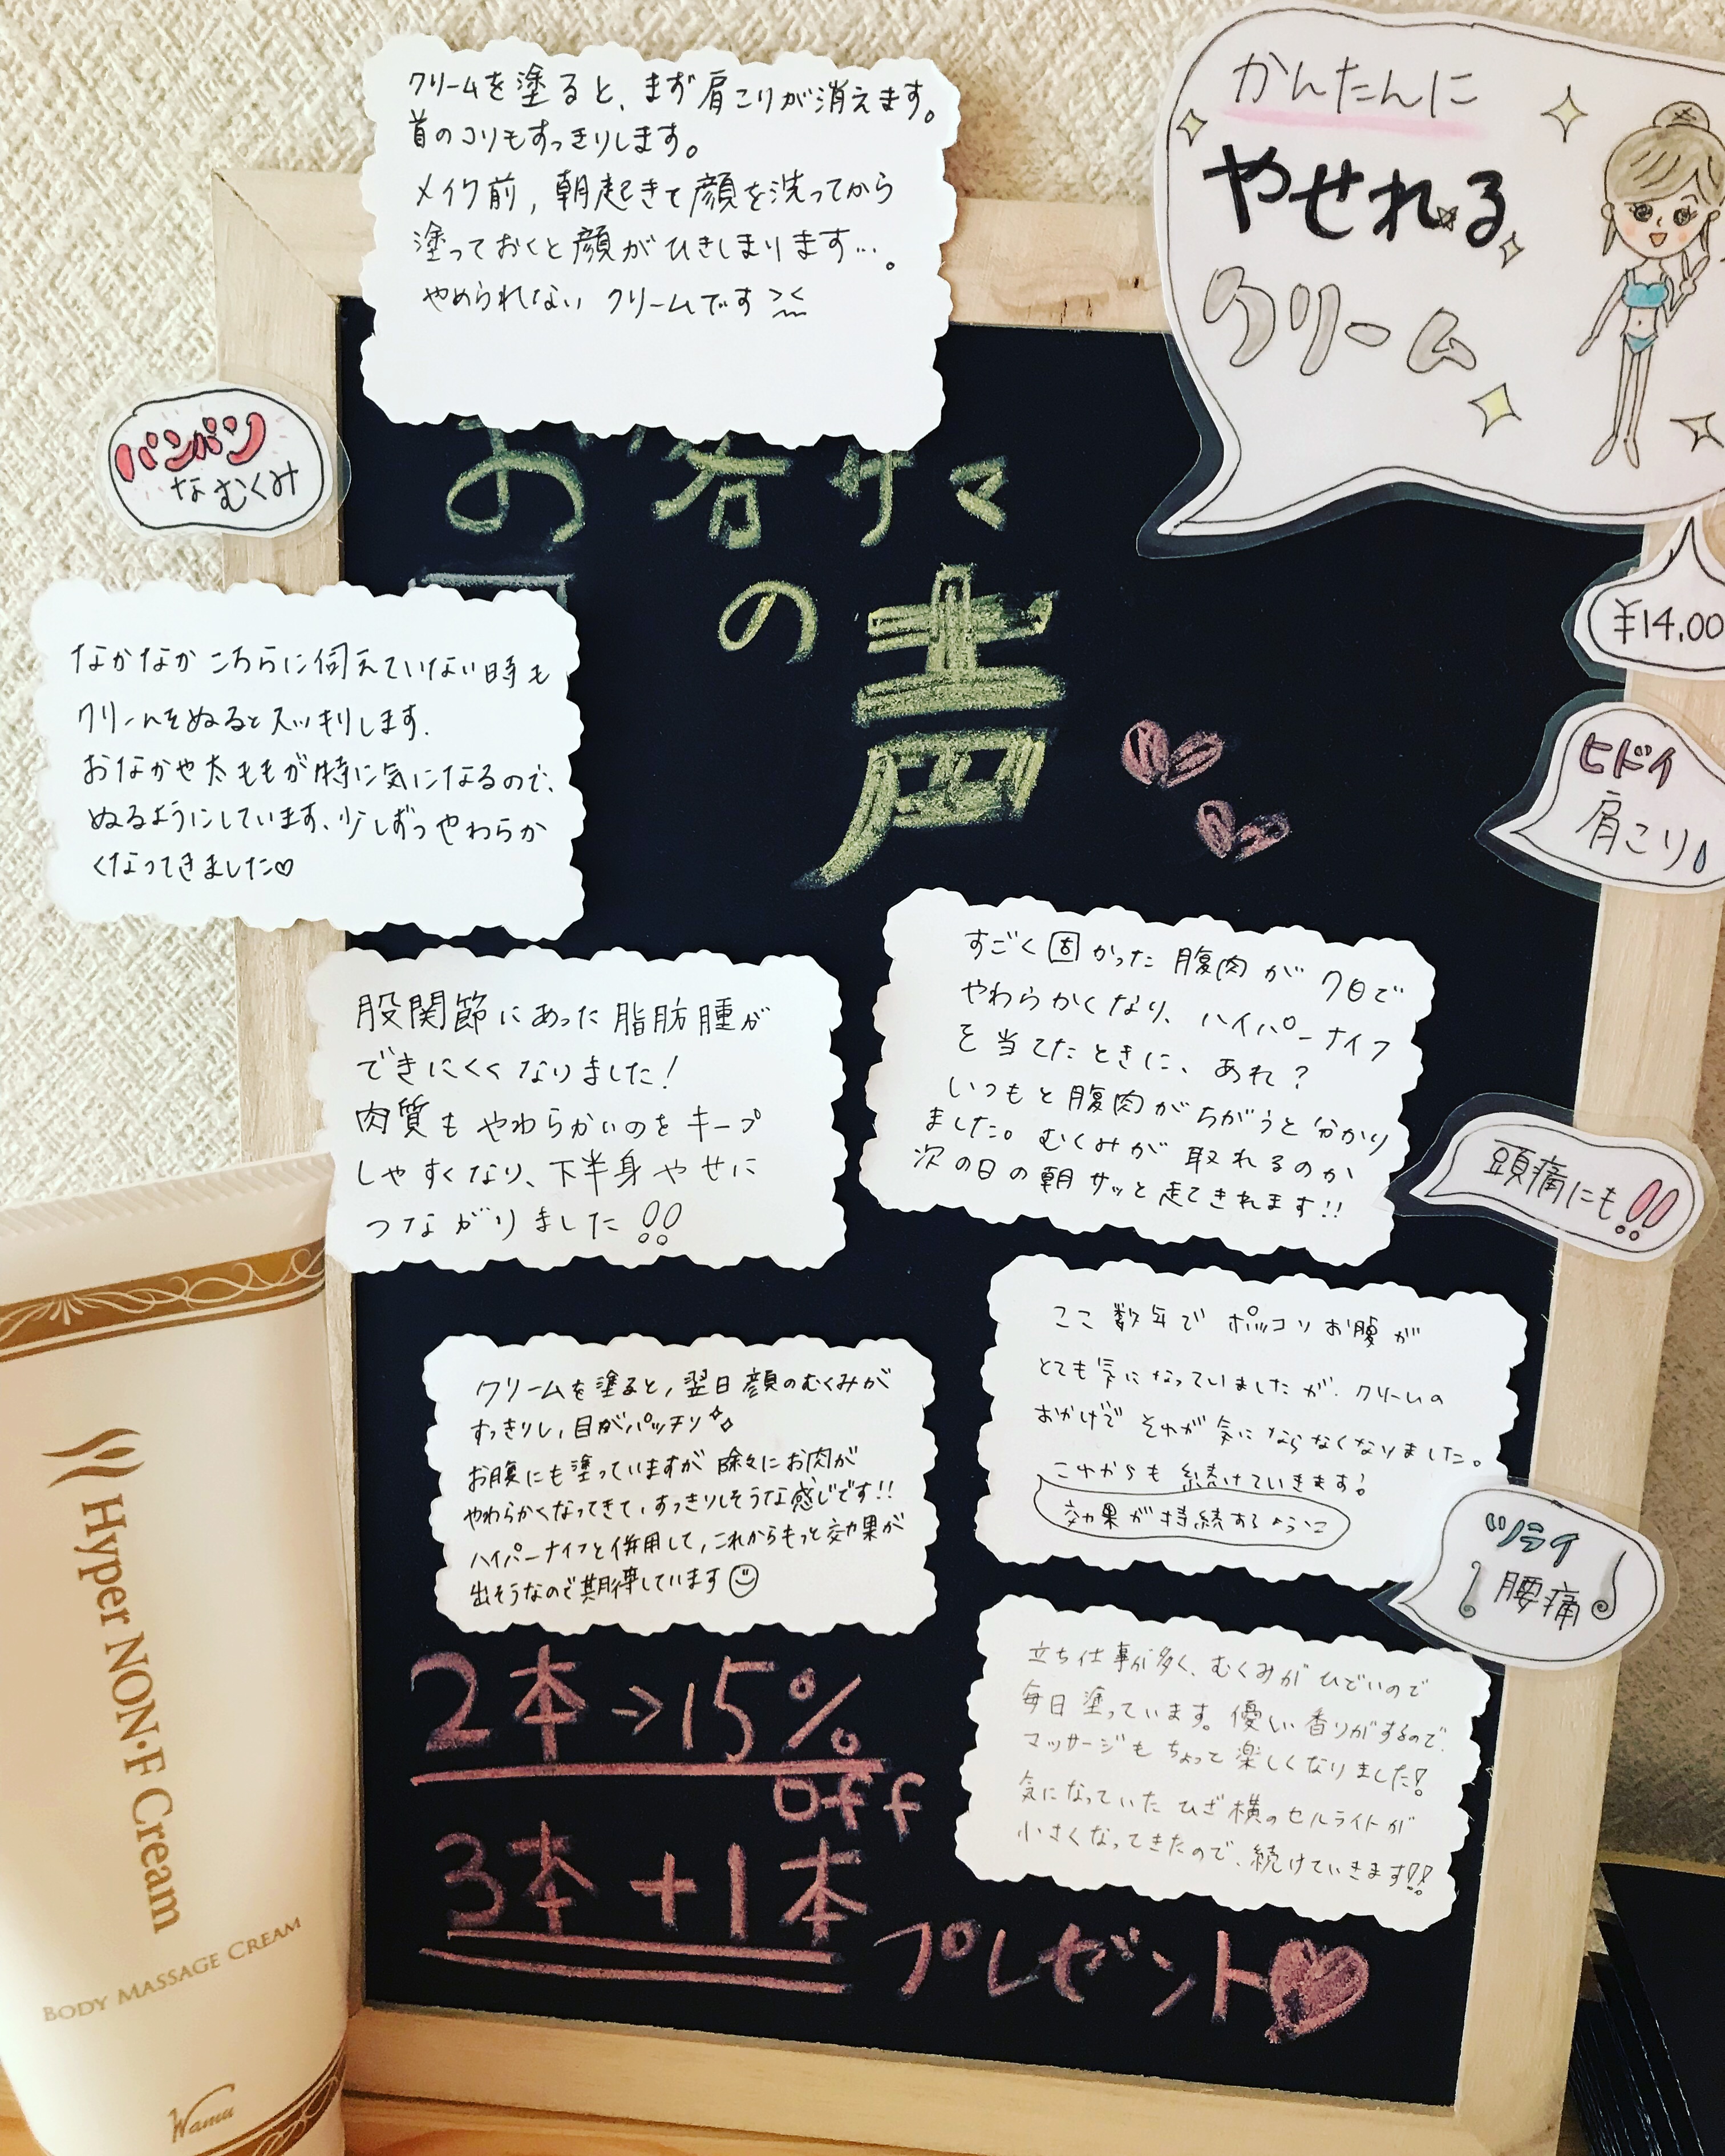 クリームを塗ると、まず肩こりが消えます。
首のコリもすっきりします。
メイク前,朝起きて顔を洗ってから
塗っておくと顔がひきしまります…。
やめられないクリームです
かんたんに
やせれる
クリーム
¥14,00
バンバン
なむくみ
お客サマ
の
声
なかなかこちらに伺えていない時も
クリームをぬるとスッキリします.
おなかや太ももが特に気になるので、
ぬるようにしています、少しずつやわらか
くなってきました♡
ヒドイ
肩こり
股関節にあった脂肪腫が
できにくくなりました!
肉質もやわらかいのをキープ
しやすくなり、下半身やせに
つながりました!!
すごく固かった腹肉が7日で
やわらかくなり、ハイパーナイフ
を当てたときに、あれ?
いつもと腹肉がちがうと分かり
ました。むくみが取れるのか
次の日の朝サッと起てきれます!!
頭痛にも!!
クリームを塗ると,翌日顔のむくみが
すっきりし,目がパッチリ
お腹にも塗っていますが除々にお肉が
やわらかくなってきて,すっきりしそうな感じです!!
ハイパーナイフと併用して,これからもっと効果が
出そうなので期待しています
ここ数年でポッコリお腹が
とても気になっていましたが、クリームの
おかげでそれが気にならなくなりました。
これからも続けていきます!
効果が持続するように
ツライ
腰痛
立ち仕事が多く、むくみがひどいので
毎日塗っています。優しい香りがするので、
マッサージもちょって楽しくなりました!
気になっていたひざ横のセルライトが
小さくなってきたので、続けていきます!!
2本→15%
off
3本+1本
プレゼント
Hyper NON・F Cream
BODY MASSAGE CREAM
Wamu